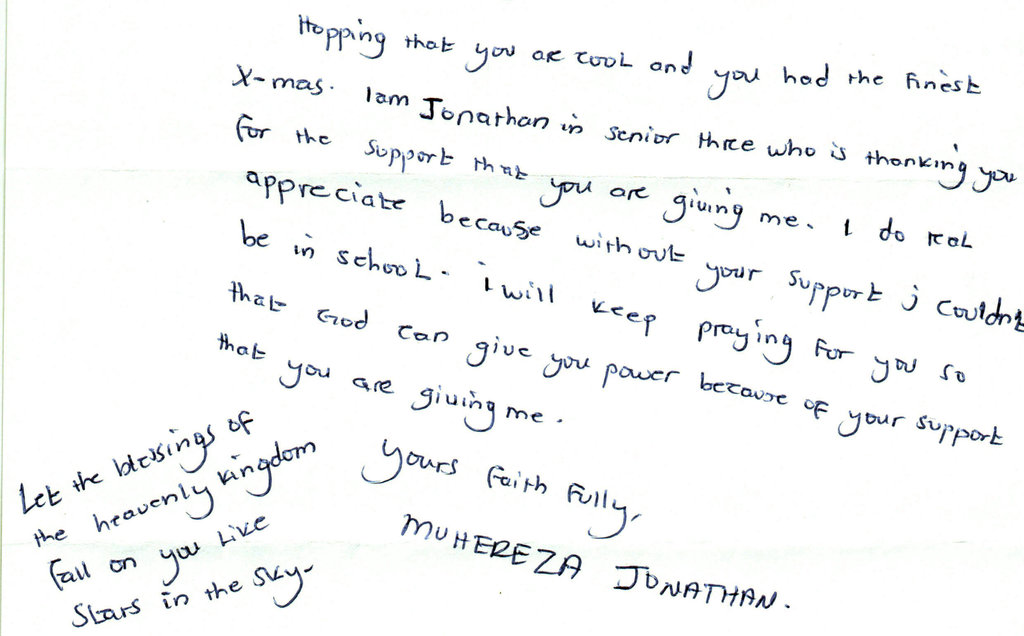 Hopping that you are cool and you had the finest
X-mas. Iam Jonathan in senior three who is thanking you
for the support that you are giving me. I do real
appreciate because without your support i couldnt
be in school. i will keep praying for you so
that God can give you power because of your support
that you are giving me.
Yours Faith Fully,
MUHEREZA JONATHAN.
Let the blessings of
the heavenly kingdom
fall on you like
Stars in the sky-